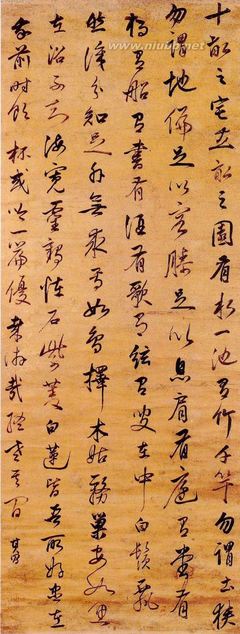 十畝之宅五畝之園有水一池有竹千竿勿謂土狹
勿謂地偏足以容膝足以息肩有庭有堂有
橋有船有書有酒有歌有絃有叟在中白鬚飄
然識分知足外無求焉如鳥擇木姑務巢安如龜
在沼不知海寬靈鶴恠石紫菱白蓮皆吾所好盡在
吾前時飲一杯或吟一篇優哉游哉終老其間